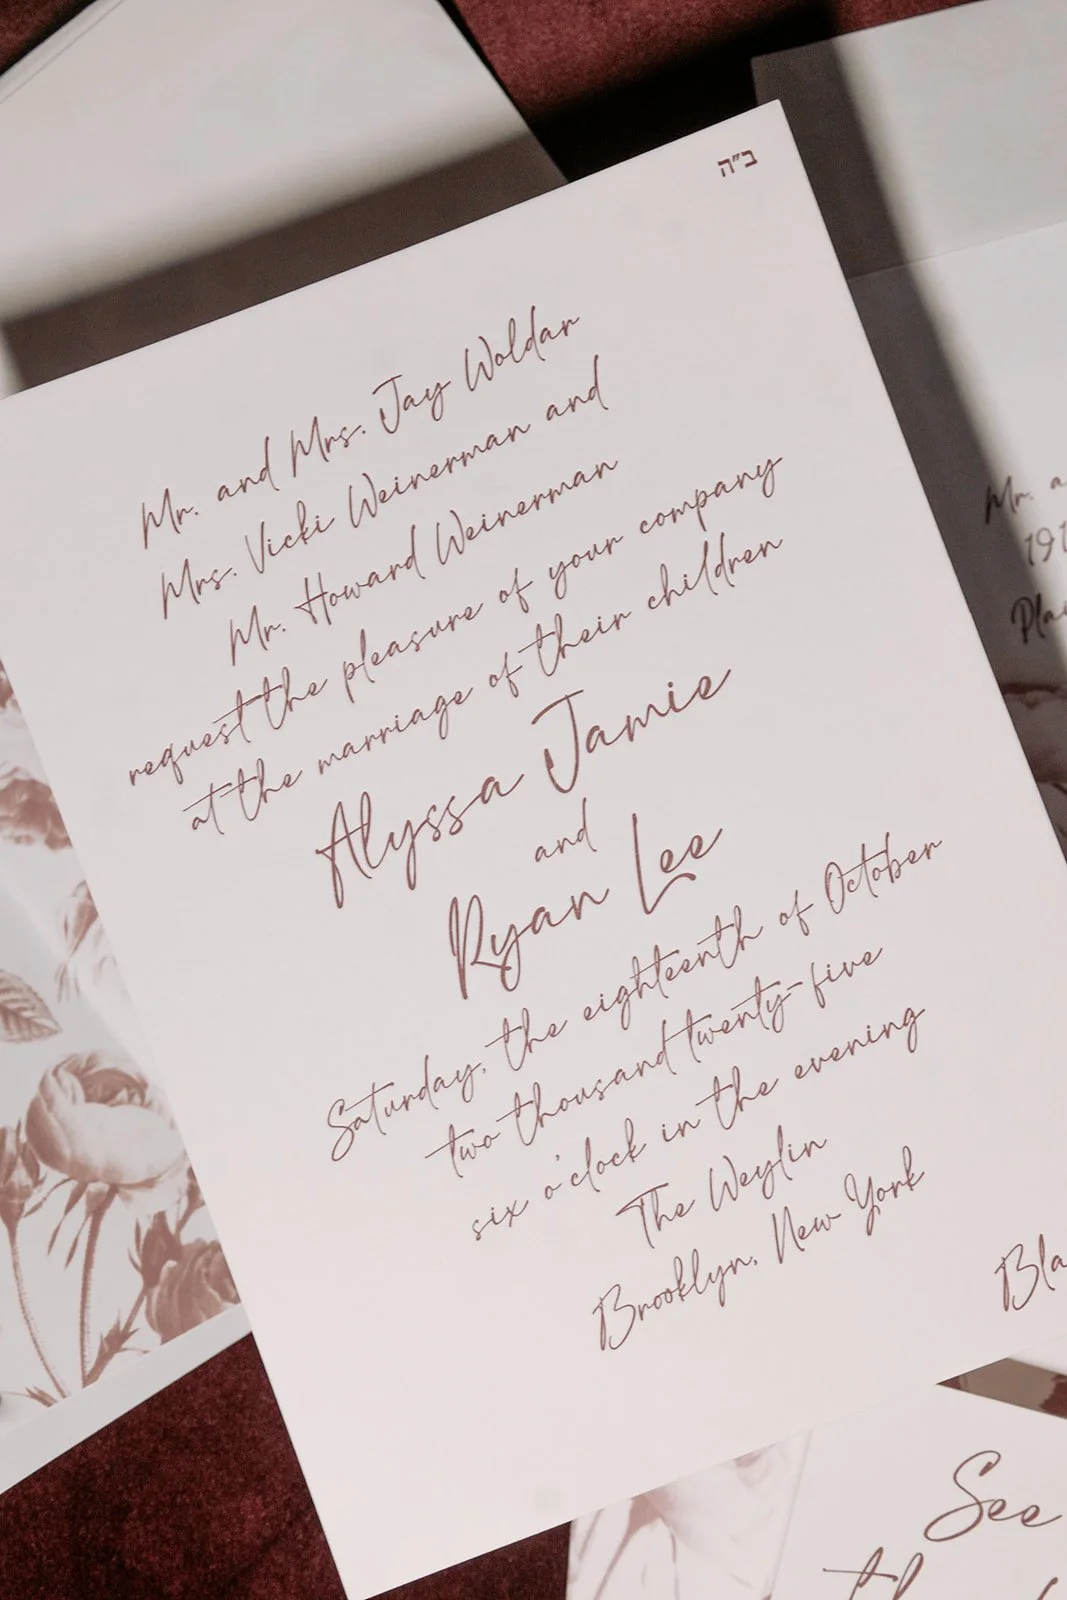 ב"ה
Mr. and Mrs. Jay Woldar
Mrs. Vicki Weinerman and
Mr. Howard Weinerman
request the pleasure of your company
at the marriage of their children
Alyssa Jamie
and
Ryan Lee
Saturday, the eighteenth of October
two thousand twenty-five
six o'clock in the evening
The Weylin
Brooklyn, New York
Mr.
See